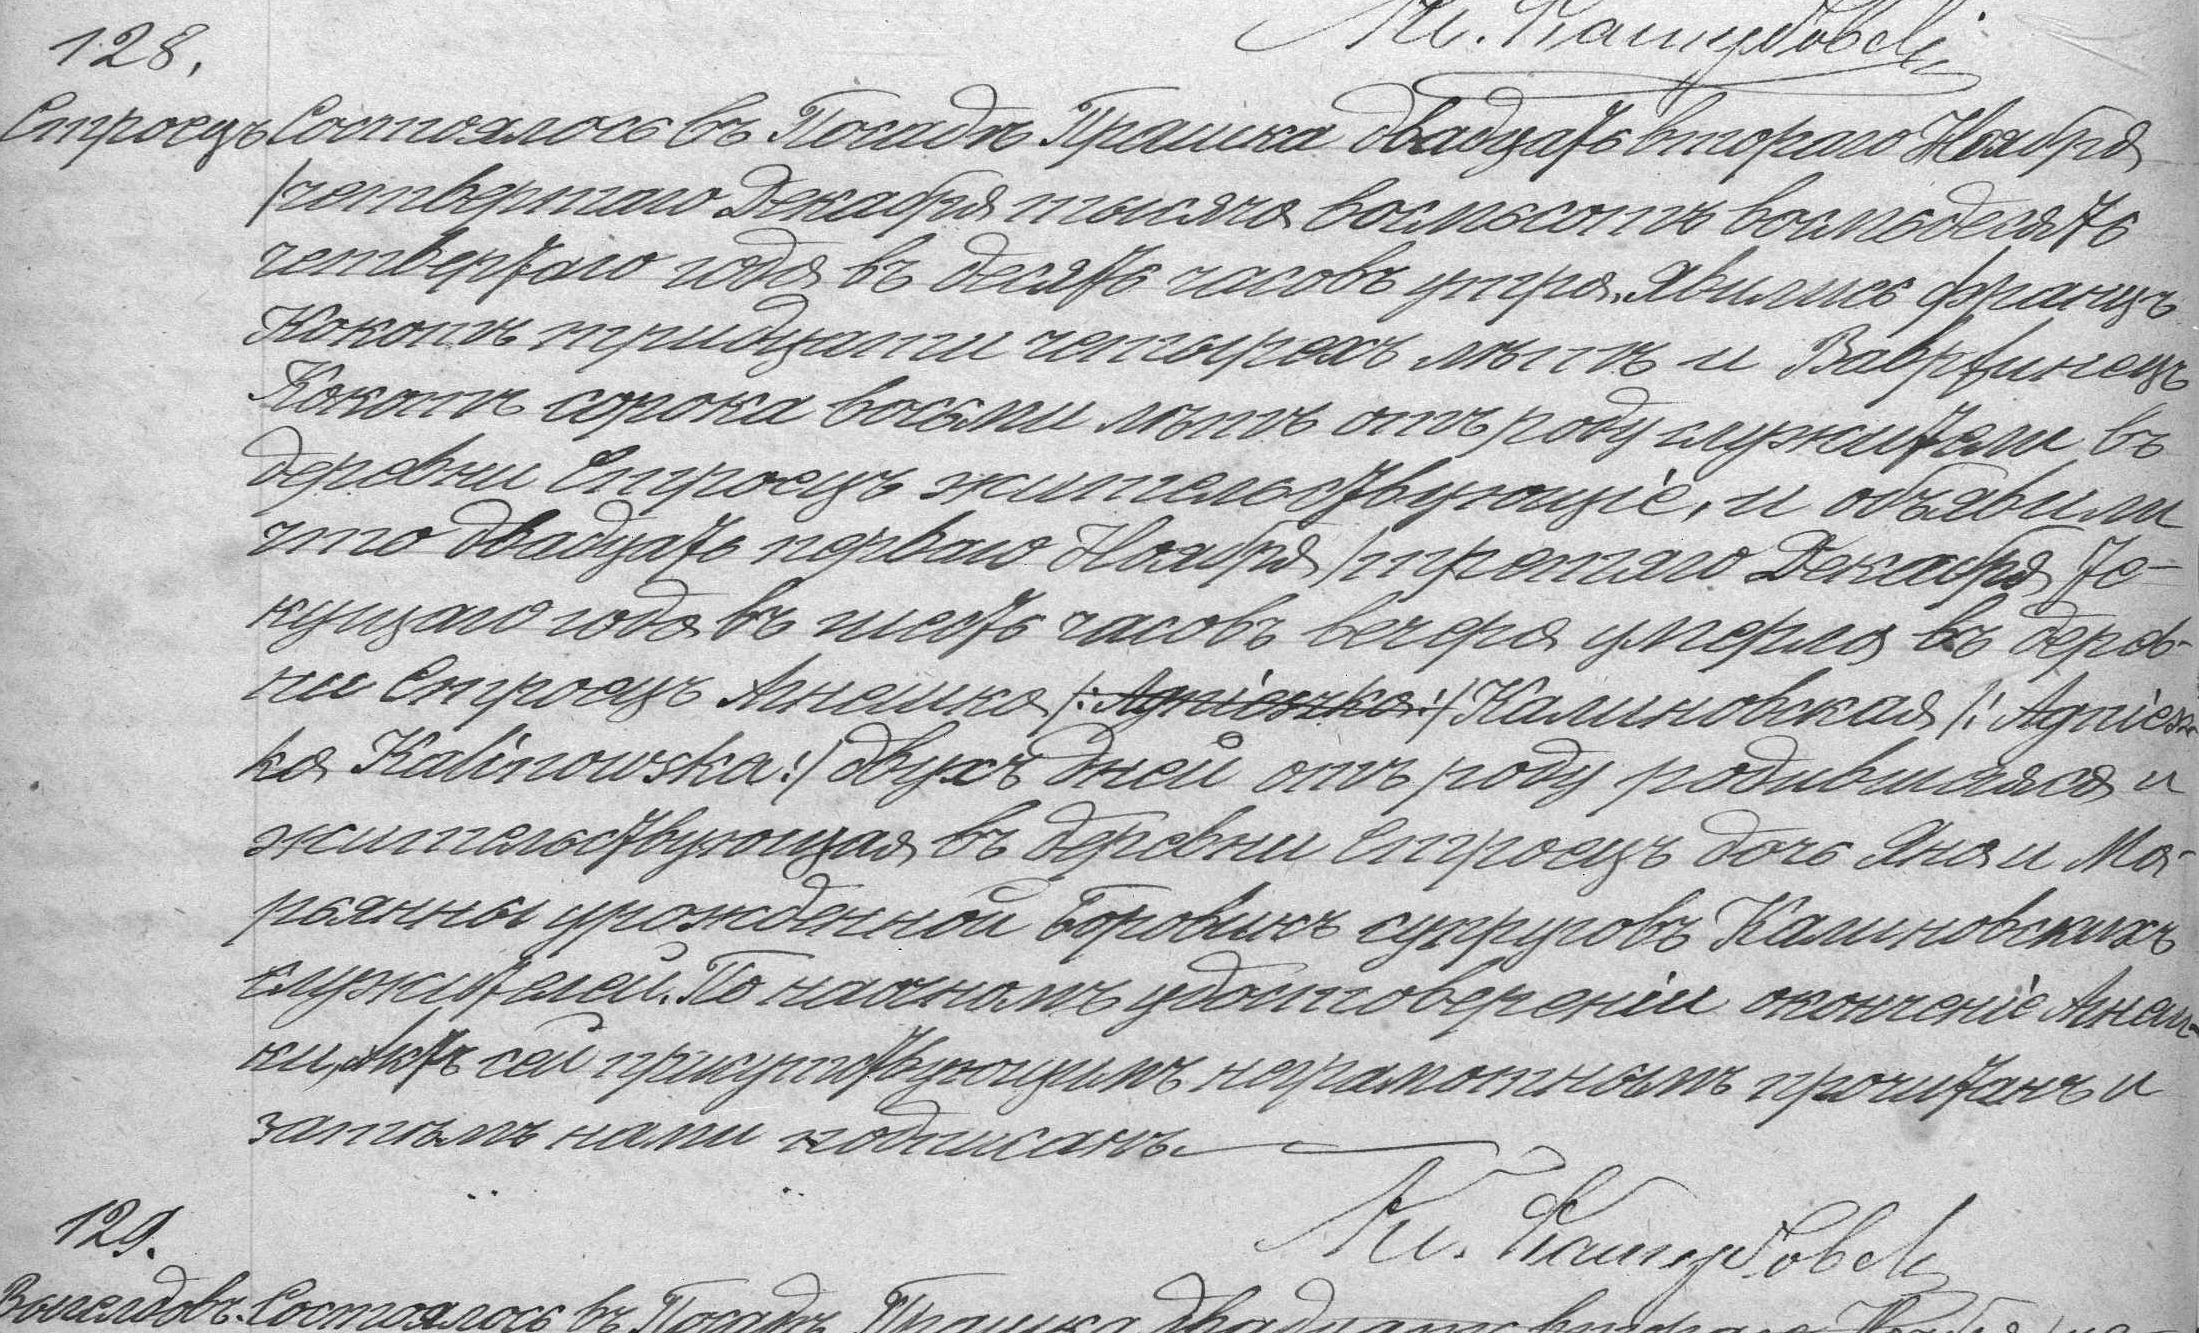 128.
Строецъ Состоялось въ Посадѣ Прашка двадцать втораго Ноября
/четвертаго Декабря тысяча восмьсотъ восмьдесять
четвертаго года въ десять часовъ утра. Явились Францъ
Кокотъ тридцати четырехъ лѣтъ и Вавржинецъ
Кокотъ сорока восьми лѣтъ отъ роду служители въ
деревни Строецъ жительствующіе, и объявили
что двадцать перваго Ноября /третяго Декабря те-
кущаго года въ шесть часовъ вечера умерла въ дерев-
ни Строецъ Агнешка /: Agnieszka :/ Калиновская /: Agniesz-
ka Kalinowska :/ двухъ дней отъ роду родившаяся и
жительствующая въ деревни Строецъ дочь Яна и Ма-
рьянны урожденной Боровикъ супруговъ Калиновскихъ
служителей. По наочномъ удостовереніи оконченіе Агнеш-
ки, Актъ сей присутствующимъ неграмотнымъ прочитанъ и
затѣмъ нами подписанъ
129.
Состоялось въ Посадѣ Прашка двадцать втораго